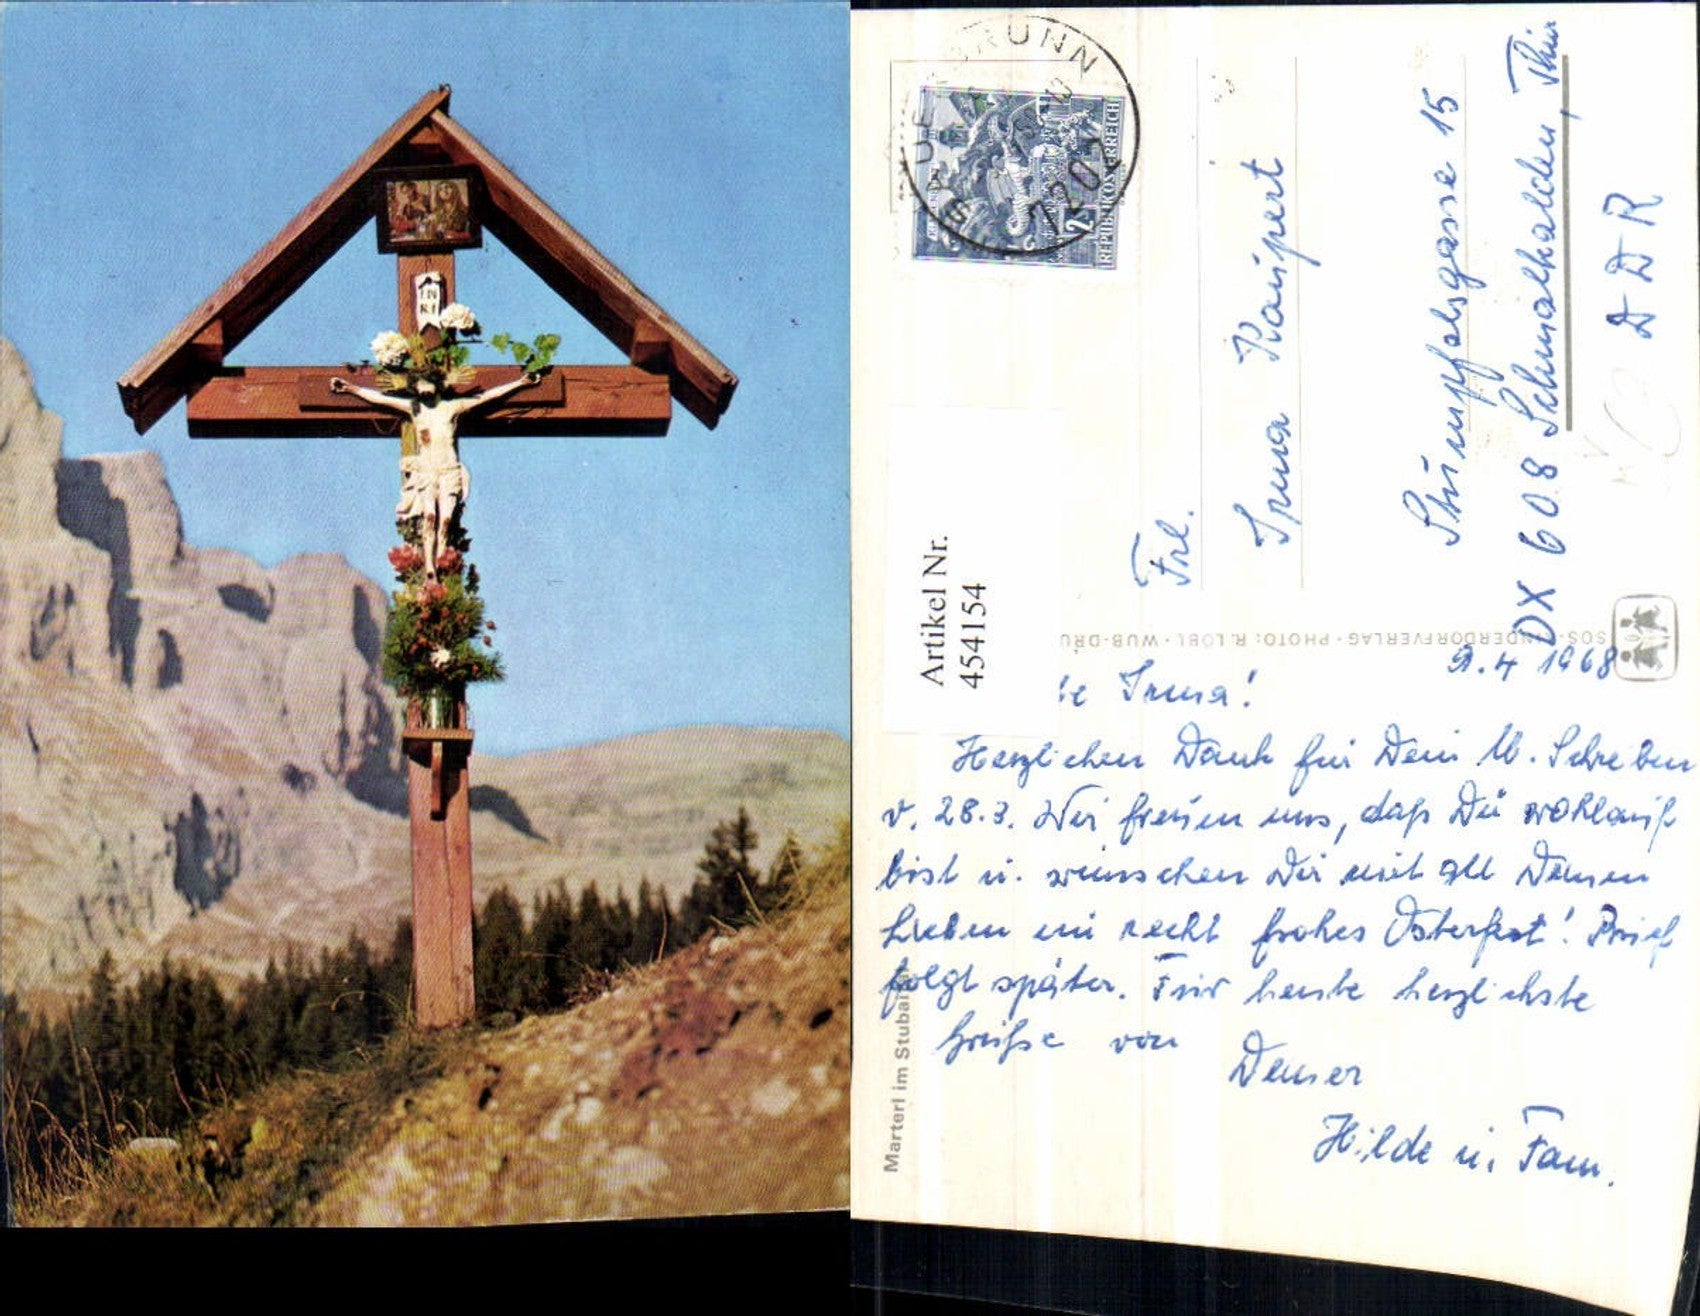 IN
RI
SAUERBRUNN
7202
2 S
REPUBLIK ÖSTERREICH
Frl.
Irma Kaupert
Stumpfelsgasse 15
DX 608 Schmalkalden, Thür
DDR
Artikel Nr.
454154
SOS-KINDERDORFVERLAG · PHOTO: R. LÖBL · WUB-DRU
9.4 1968
be Irma!
Herzlichen Dank für Dein lb. Schreiben
v. 28.3. Wir freuen uns, daß Du wohlauf
bist u. wünschen Dir mit all Deinen
Lieben ein recht frohes Osterfest! Brief
folgt später. Für heute herzlichste
Grüße von
Deiner
Hilde u. Fam.
Marterl im Stubai